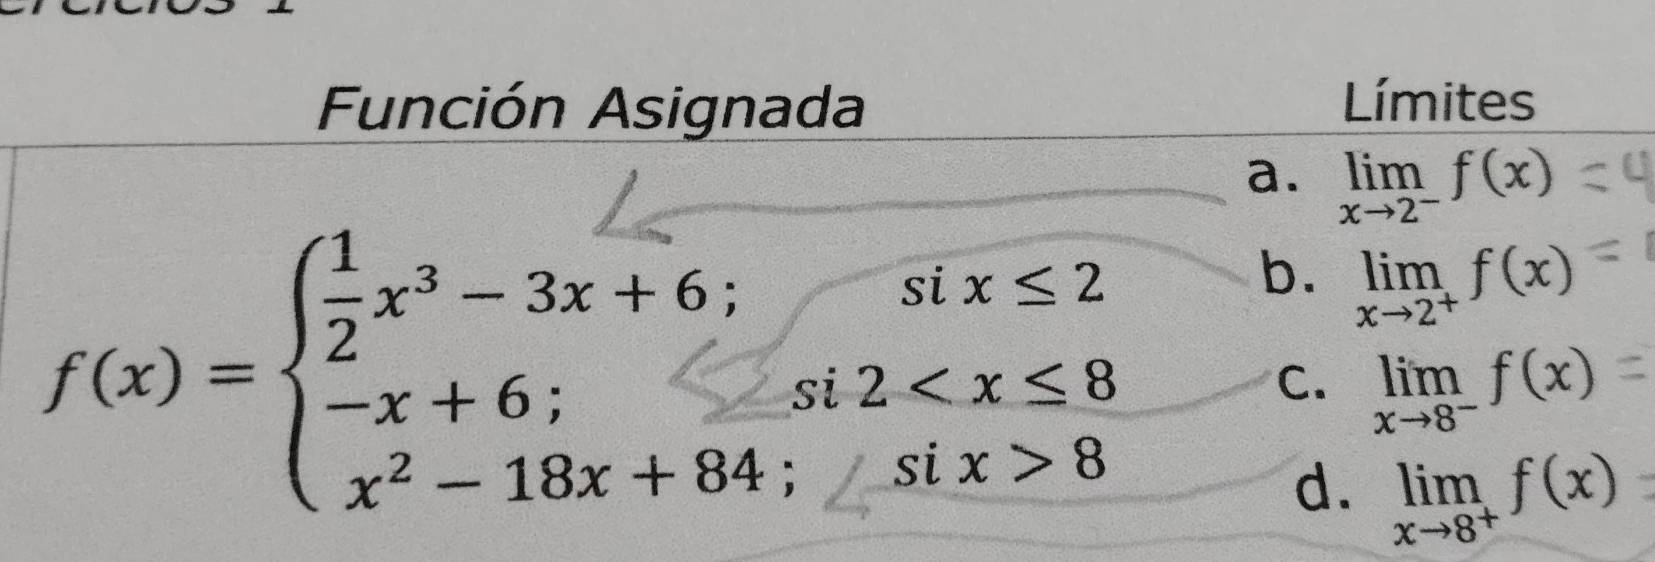 Función Asignada
Límites
f(x) = { 1/2 x³ − 3x + 6 ; si x ≤ 2
−x + 6 ; si 2 < x ≤ 8
x² − 18x + 84 ; si x > 8
a. lim x→2⁻ f(x) = 4
b. lim x→2⁺ f(x) =
c. lim x→8⁻ f(x) =
d. lim x→8⁺ f(x) =